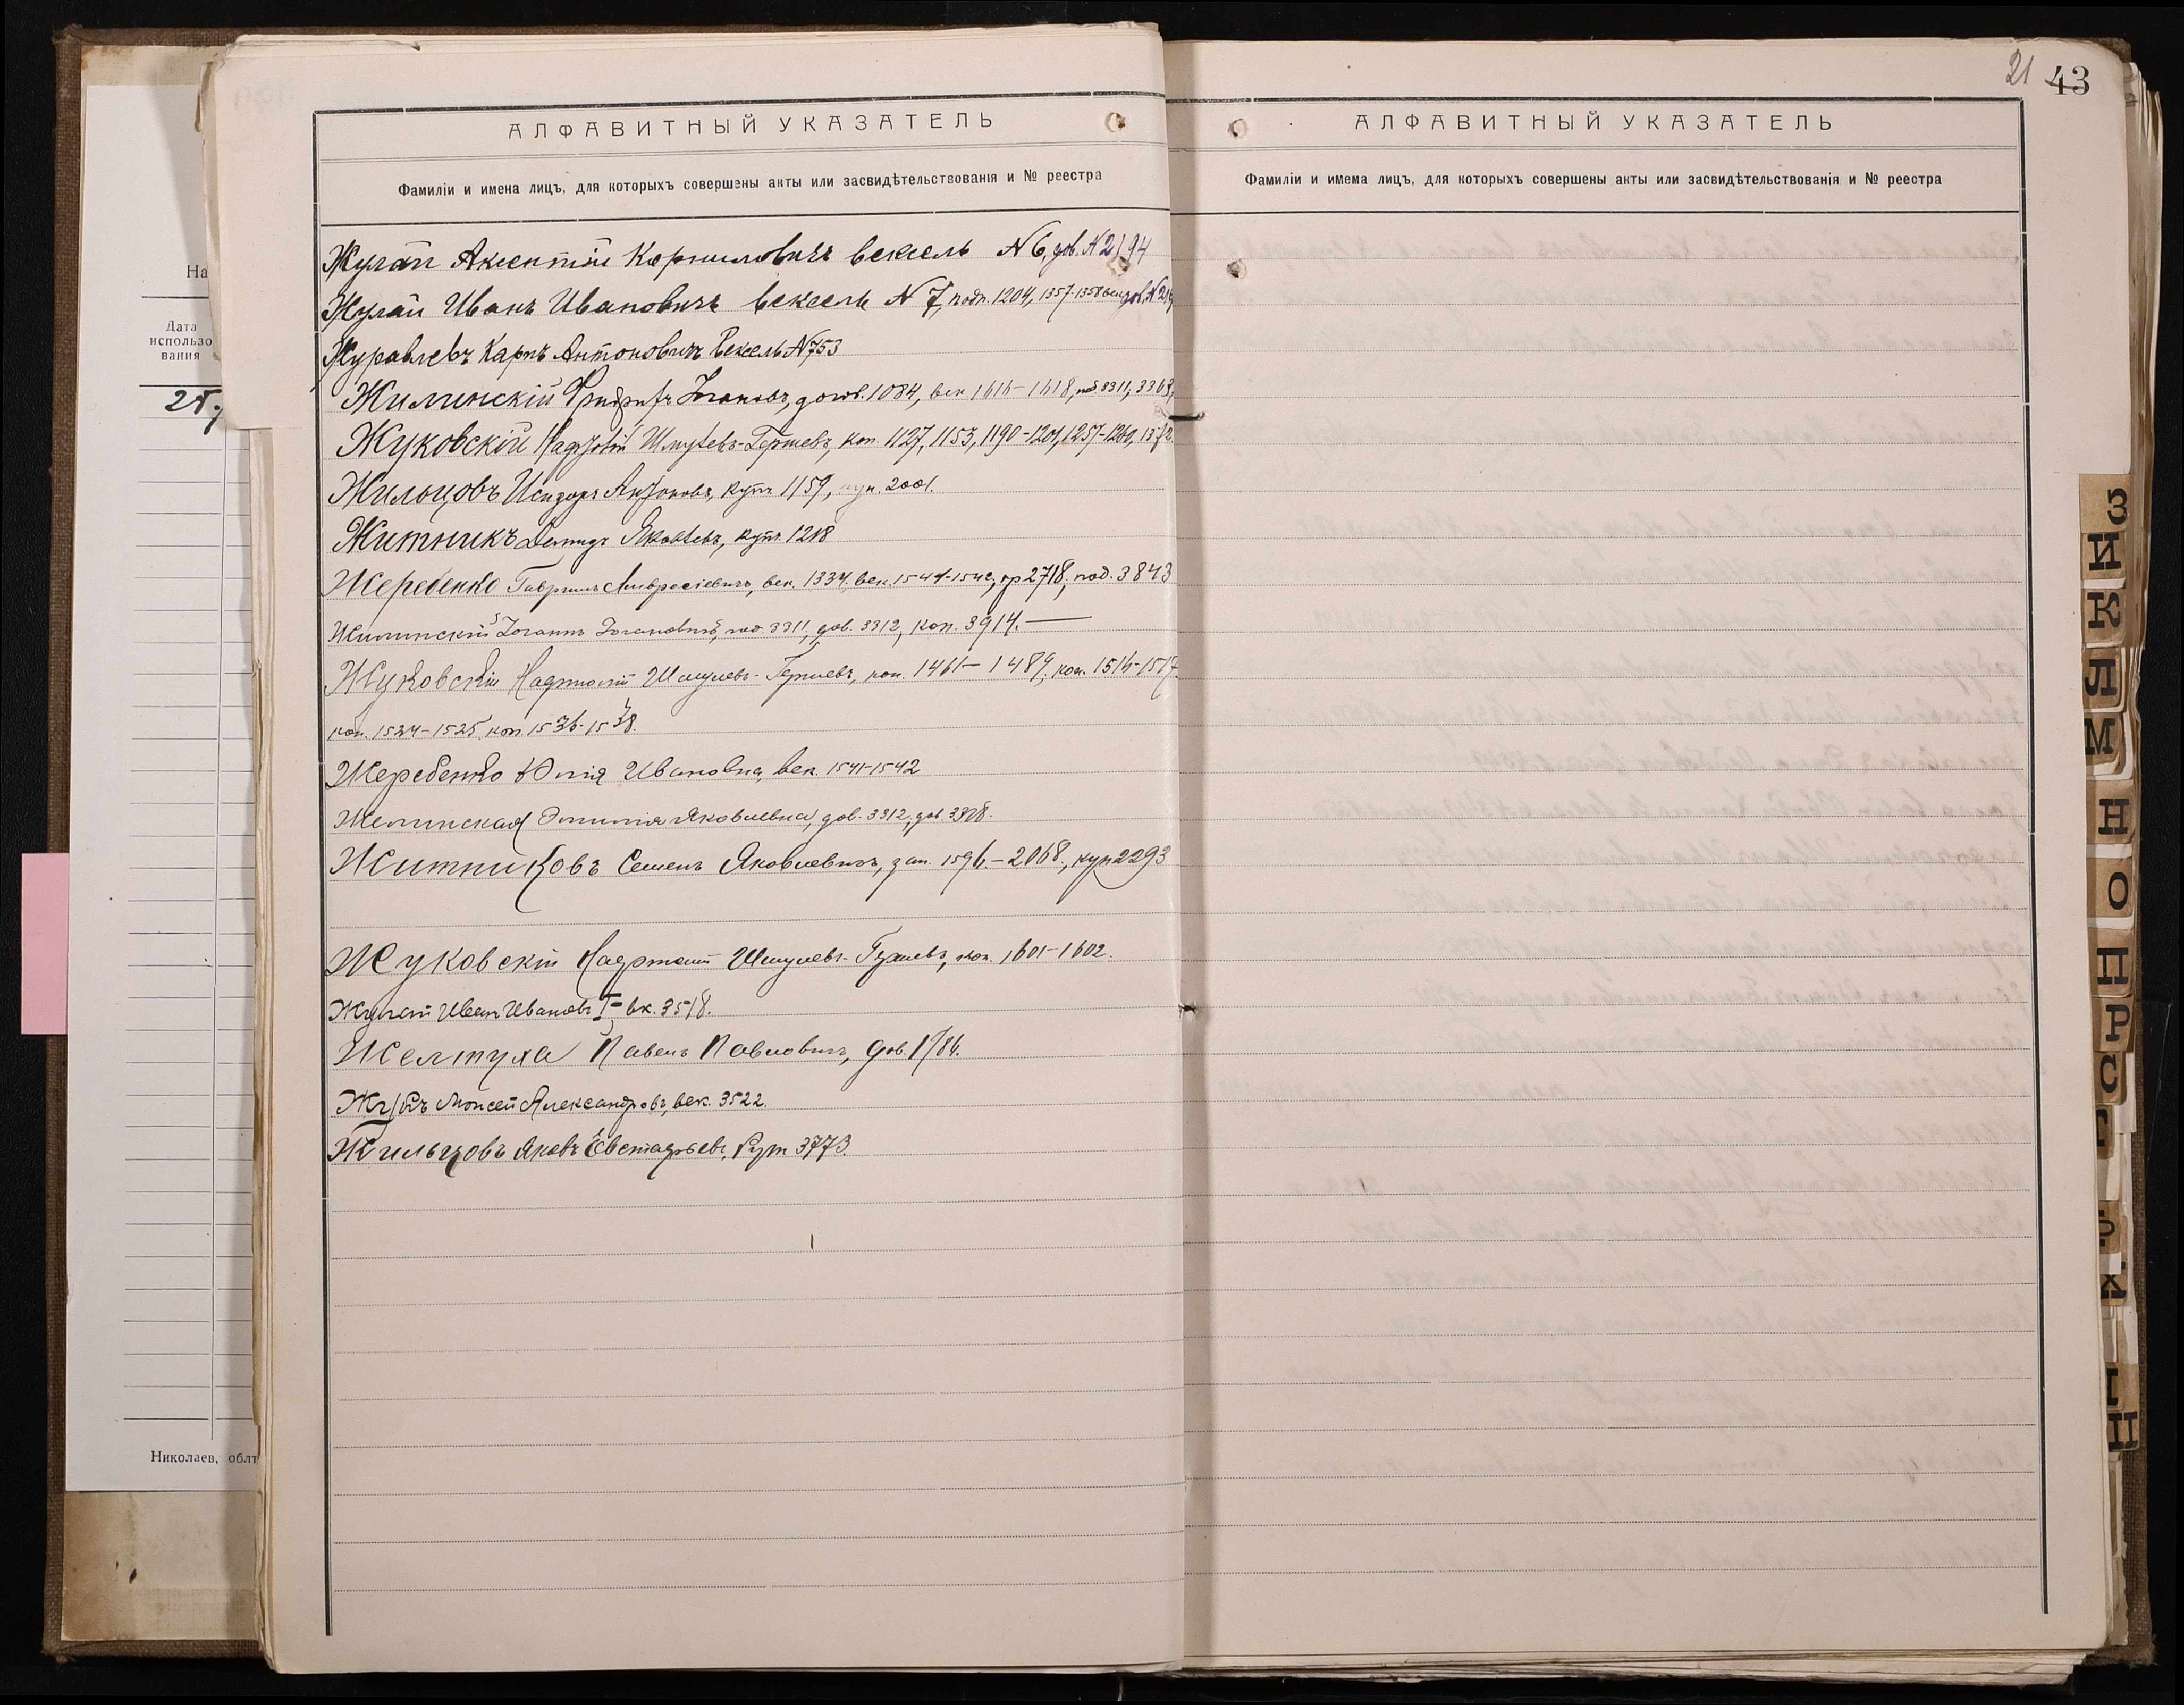 На
Дата
использо
вания
25.
Николаев, обл
АЛФАВИТНЫЙ УКАЗАТЕЛЬ
Фамиліи и имена лицъ, для которыхъ совершены акты или засвидѣтельствованія и № реестра
Жулай Аксентій Корниловичъ вексель № 6, дов. № 2194
Жулай Иванъ Ивановичъ вексель № 7, подп. 1204, 1357-1358 век дов. №
Журавлевъ Карпъ Антоновичъ Вексель № 753
Жилинскій Іогановъ, 1084, век 1616-1618, под. 3311, 3363,
Жуковскій Шмулевъ-Гершевъ, коп. 1127, 1153, 1190-1201, 1257-1260, 1372
Жильцовъ Исидоръ Антоновъ, купч 1159, куп. 2001.
Житникъ Демидъ Яковлевъ, купч 1218
Жеребенко Гавріилъ Амвросіевичъ, век. 1334, век. 1541-1542, пр 2718, под. 3843
Жилинскій Іоганнъ Іогановичъ, под. 3311, дов. 3312, коп. 3914.
Жуковскій Шмулевъ-Гершевъ, коп. 1461-1489, коп. 1516-1517.
коп. 1524-1525, коп. 1536-1538.
Жеребенко Юлія Ивановна, век. 1541-1542
Жилинская Эмилія Яковлевна, дов. 3312, дов.
Житниковъ Семенъ Яковлевичъ, 1596.-2068., куп 2293
Жуковскій Шмулевъ-Гершевъ, коп. 1601-1602.
Жулай Иван Ивановъ I-й вк. 3518.
Желтуха Павелъ Павловичъ, дов. 1786.
Жубъ Моисей Александровъ, век. 3522.
Жильцовъ Яковъ Евстафьевъ, куп 3773.
21 43
АЛФАВИТНЫЙ УКАЗАТЕЛЬ
Фамиліи и имема лицъ, для которыхъ совершены акты или засвидѣтельствованія и № реестра
З
И
К
Л
М
Н
О
П
Р
С